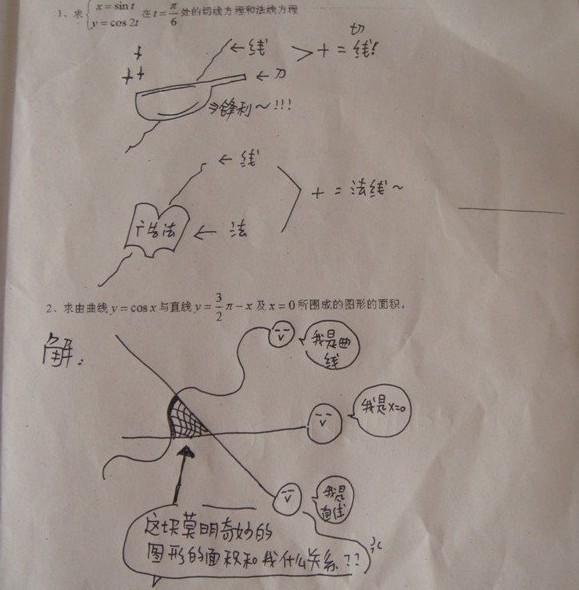 1、求{x = sin t y = cos 2t 在 t = π/6 处的切线方程和法线方程
← 线 > + = 切线!
← 刀
⇒锋利~!!!
← 线
+ = 法线~
宪法
← 法
2、求由曲线 y = cos x 与直线 y = 3/2 π − x 及 x = 0 所围成的图形的面积.
解:
我是曲线
我是x=0
我是直线
这块莫明奇妙的
图形的面积和我什么关系??